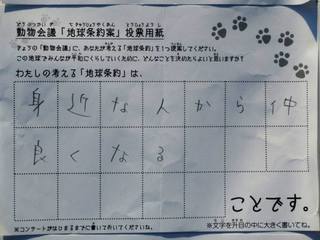 動物会議「地球条約案」投票用紙
きょうの「動物会議」に、あなたが考える「地球条約」を1つ提案してください。
この地球でみんなが平和にくらしていくために、どんなことを決めたらよいと思いますか?
わたしの考える「地球条約」は、
身近な人から仲
良くなる
ことです。
※コンサートがはじまるまでに書いておいてくださいね。
※文字を升目の中に大きく書いてね。